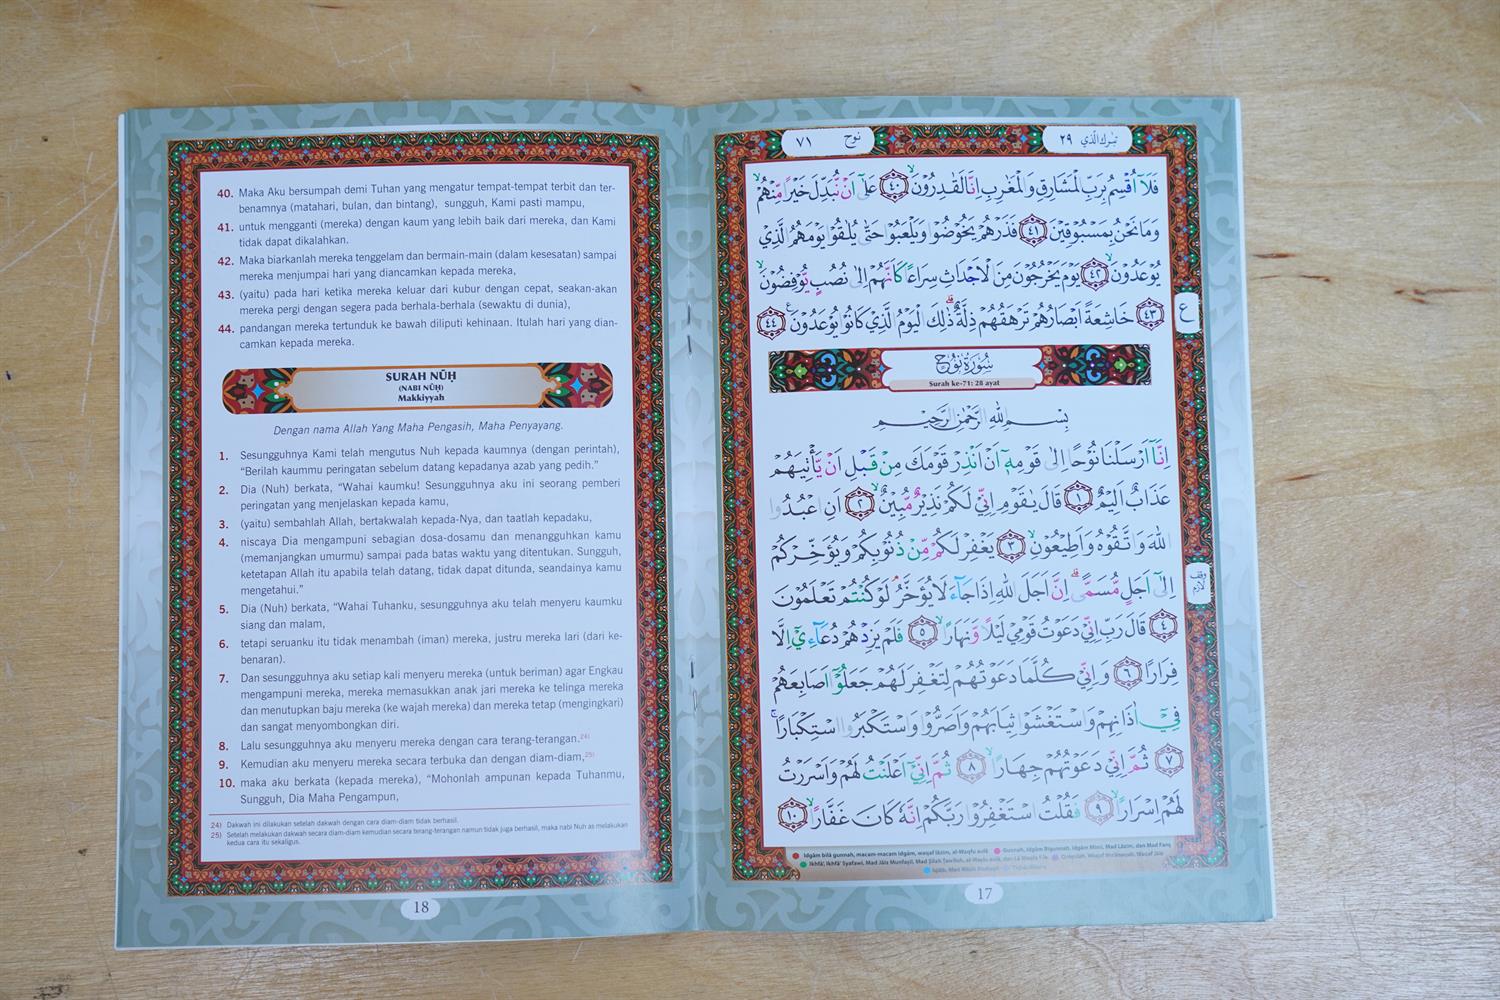 40. Maka Aku bersumpah demi Tuhan yang mengatur tempat-tempat terbit dan ter-
benamnya (matahari, bulan, dan bintang), sungguh, Kami pasti mampu,
41. untuk mengganti (mereka) dengan kaum yang lebih baik dari mereka, dan Kami
tidak dapat dikalahkan.
42. Maka biarkanlah mereka tenggelam dan bermain-main (dalam kesesatan) sampai
mereka menjumpai hari yang diancamkan kepada mereka,
43. (yaitu) pada hari ketika mereka keluar dari kubur dengan cepat, seakan-akan
mereka pergi dengan segera pada berhala-berhala (sewaktu di dunia),
44. pandangan mereka tertunduk ke bawah diliputi kehinaan. Itulah hari yang dian-
camkan kepada mereka.
SURAH NŪḤ
(NABI NŪḤ)
Makkiyyah
Dengan nama Allah Yang Maha Pengasih, Maha Penyayang.
1. Sesungguhnya Kami telah mengutus Nuh kepada kaumnya (dengan perintah),
“Berilah kaummu peringatan sebelum datang kepadanya azab yang pedih.”
2. Dia (Nuh) berkata, “Wahai kaumku! Sesungguhnya aku ini seorang pemberi
peringatan yang menjelaskan kepada kamu,
3. (yaitu) sembahlah Allah, bertakwalah kepada-Nya, dan taatlah kepadaku,
4. niscaya Dia mengampuni sebagian dosa-dosamu dan menangguhkan kamu
(memanjangkan umurmu) sampai pada batas waktu yang ditentukan. Sungguh,
ketetapan Allah itu apabila telah datang, tidak dapat ditunda, seandainya kamu
mengetahui.”
5. Dia (Nuh) berkata, “Wahai Tuhanku, sesungguhnya aku telah menyeru kaumku
siang dan malam,
6. tetapi seruanku itu tidak menambah (iman) mereka, justru mereka lari (dari ke-
benaran).
7. Dan sesungguhnya aku setiap kali menyeru mereka (untuk beriman) agar Engkau
mengampuni mereka, mereka memasukkan anak jari mereka ke telinga mereka
dan menutupkan baju mereka (ke wajah mereka) dan mereka tetap (mengingkari)
dan sangat menyombongkan diri.
8. Lalu sesungguhnya aku menyeru mereka dengan cara terang-terangan.24)
9. Kemudian aku menyeru mereka secara terbuka dan dengan diam-diam,25)
10. maka aku berkata (kepada mereka), “Mohonlah ampunan kepada Tuhanmu,
Sungguh, Dia Maha Pengampun,
24) Dakwah ini dilakukan setelah dakwah dengan cara diam-diam tidak berhasil.
25) Setelah melakukan dakwah secara diam-diam kemudian secara terang-terangan namun tidak juga berhasil, maka nabi Nuh as melakukan
kedua cara itu sekaligus.
18
تبرك الذي ٢٩
نوح ٧١
فَلَآ اُقْسِمُ بِرَبِّ الْمَشٰرِقِ وَالْمَغٰرِبِ اِنَّا لَقٰدِرُوْنَۙ ٤٠ عَلٰٓى اَنْ نُّبَدِّلَ خَيْرًا مِّنْهُمْۙ
وَمَا نَحْنُ بِمَسْبُوْقِيْنَ ٤١ فَذَرْهُمْ يَخُوْضُوْا وَيَلْعَبُوْا حَتّٰى يُلٰقُوْا يَوْمَهُمُ الَّذِيْ
يُوْعَدُوْنَۙ ٤٢ يَوْمَ يَخْرُجُوْنَ مِنَ الْاَجْدَاثِ سِرَاعًا كَاَنَّهُمْ اِلٰى نُصُبٍ يُّوْفِضُوْنَۙ
٤٣ خَاشِعَةً اَبْصَارُهُمْ تَرْهَقُهُمْ ذِلَّةٌ ۗذٰلِكَ الْيَوْمُ الَّذِيْ كَانُوْا يُوْعَدُوْنَ ࣖ ٤٤
ع
سُوْرَةُ نُوْحٍ
Surah ke-71: 28 ayat
بِسْمِ اللّٰهِ الرَّحْمٰنِ الرَّحِيْمِ
اِنَّآ اَرْسَلْنَا نُوْحًا اِلٰى قَوْمِهٖٓ اَنْ اَنْذِرْ قَوْمَكَ مِنْ قَبْلِ اَنْ يَّأْتِيَهُمْ
عَذَابٌ اَلِيْمٌ ١ قَالَ يٰقَوْمِ اِنِّيْ لَكُمْ نَذِيْرٌ مُّبِيْنٌۙ ٢ اَنِ اعْبُدُوا
اللّٰهَ وَاتَّقُوْهُ وَاَطِيْعُوْنِۙ ٣ يَغْفِرْ لَكُمْ مِّنْ ذُنُوْبِكُمْ وَيُؤَخِّرْكُمْ
اِلٰٓى اَجَلٍ مُّسَمًّىۗ اِنَّ اَجَلَ اللّٰهِ اِذَا جَاۤءَ لَا يُؤَخَّرُۘ لَوْ كُنْتُمْ تَعْلَمُوْنَ
وقف لازم
٤ قَالَ رَبِّ اِنِّيْ دَعَوْتُ قَوْمِيْ لَيْلًا وَّنَهَارًاۙ ٥ فَلَمْ يَزِدْهُمْ دُعَاۤءِيْٓ اِلَّا
فِرَارًا ٦ وَاِنِّيْ كُلَّمَا دَعَوْتُهُمْ لِتَغْفِرَ لَهُمْ جَعَلُوْٓا اَصَابِعَهُمْ
فِيْٓ اٰذَانِهِمْ وَاسْتَغْشَوْا ثِيَابَهُمْ وَاَصَرُّوْا وَاسْتَكْبَرُوا اسْتِكْبَارًاۚ
٧ ثُمَّ اِنِّيْ دَعَوْتُهُمْ جِهَارًاۙ ٨ ثُمَّ اِنِّيْٓ اَعْلَنْتُ لَهُمْ وَاَسْرَرْتُ
لَهُمْ اِسْرَارًاۙ ٩ فَقُلْتُ اسْتَغْفِرُوْا رَبَّكُمْ اِنَّهٗ كَانَ غَفَّارًاۙ ١٠
Idgām bilā gunnah, macam-macam Idgām, waqaf lāzim, al-Waqfu aulā Gunnah, Idgām Bigunnah, Idgām Mimi, Mad Lāzim, dan Mad Farq
Ikhfā', Ikhfā' Syafawi, Mad Jāiz Munfaṣil, Mad Ṣilah Ṭawīlah, al-Waṣlu aulā, dan Lā Waqfa Fih
17